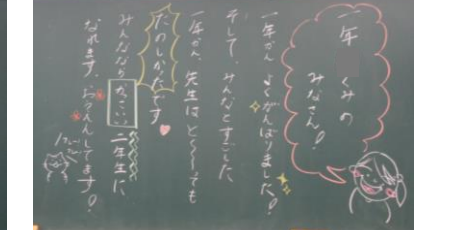 一年 くみの
みなさん!
一年かん よくがんばりました!
そして、みんなとすごした
一年かん、先生はと〜〜っても
たのしかったです
みんななら かっこいい 二年生に
なれます。おうえんしてます!